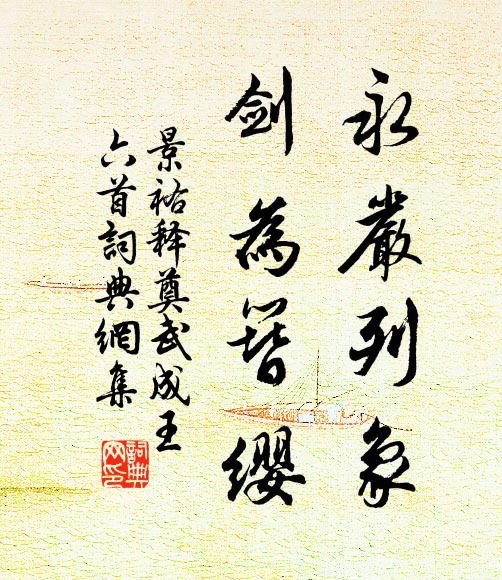 永嚴列象
劍為簪纓
景祐释奠武成王
六首詞典網集
詞典網印